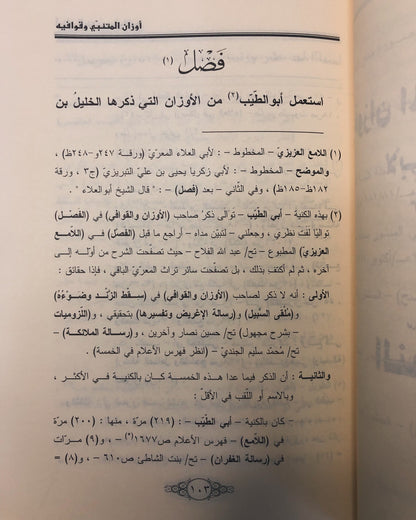 أوزان المتنبّي وقوافيه
فَصْل (١)
استعمل أبو الطّيّب(٢) من الأوزان التي ذكرها الخليلُ بن
(١) اللامع العزيزي – المخطوط – : لأبي العلاء المعرّي (ورقة ٢٤٧و–٢٤٨ظ)،
والموضح – المخطوط – : لأبي زكريا يحيى بن عليّ التبريزي (ج٣، ورقة
١٨٢ظ–١٨٥ظ)، وفي الثّاني – بعد (فصل) – : " قال الشيخ أبو العلاء " .
(٢) بهذه الكنية – أبي الطّيّب – توالى ذكرُ صاحب (الأوزان والقوافي) في (الفصْل)
تواليًا لفَتَ نظري، وجعلني – لتبيّن مداه – أراجع ما قبل (الفصل) في (اللامع
العزيزي) المطبوع – تح/ عبد الله الفلاح – حيث تصفّحت الشرح من أوّله إلى
آخره، ثم لم أكتفِ بذلك، بل تصفّحت سائر تراث المعرّي الباقي، فإذا حقائق :
الأولى : أنه لا ذكر لصاحب (الأوزان والقوافي) في (سقْط الزَّنْد وضَوْءه)
و(مُلْقى السَّبيل) و(رسالة الإغريض وتفسيرها) بتحقيقي، و(اللزوميات
– بشرح مجهول) تح/ حسين نصار وآخرين، و(رسالة الملائكة) –
تح/ محمّد سليم الجنديّ – (انظر فهرس الأعلام في الخمسة) .
والثانية : أن الذكر فيما عدا هذه الخمسة كان بالكنية في الأكثر ،
وبالاسم أو اللقب في الأقلّ :
– كان بالكنية – أبي الطّيّب – : (٢١٩) مرّة ، منها : (٢٠٠) مرّة
في (اللامع) – فهرس الأعلام ص١٦٧٧(*) – ، و(٩) مرات
في (رسالة الغفران) – تح/ بنت الشاطئ ص٦١٠ – ، و(٨) =
١٠٣